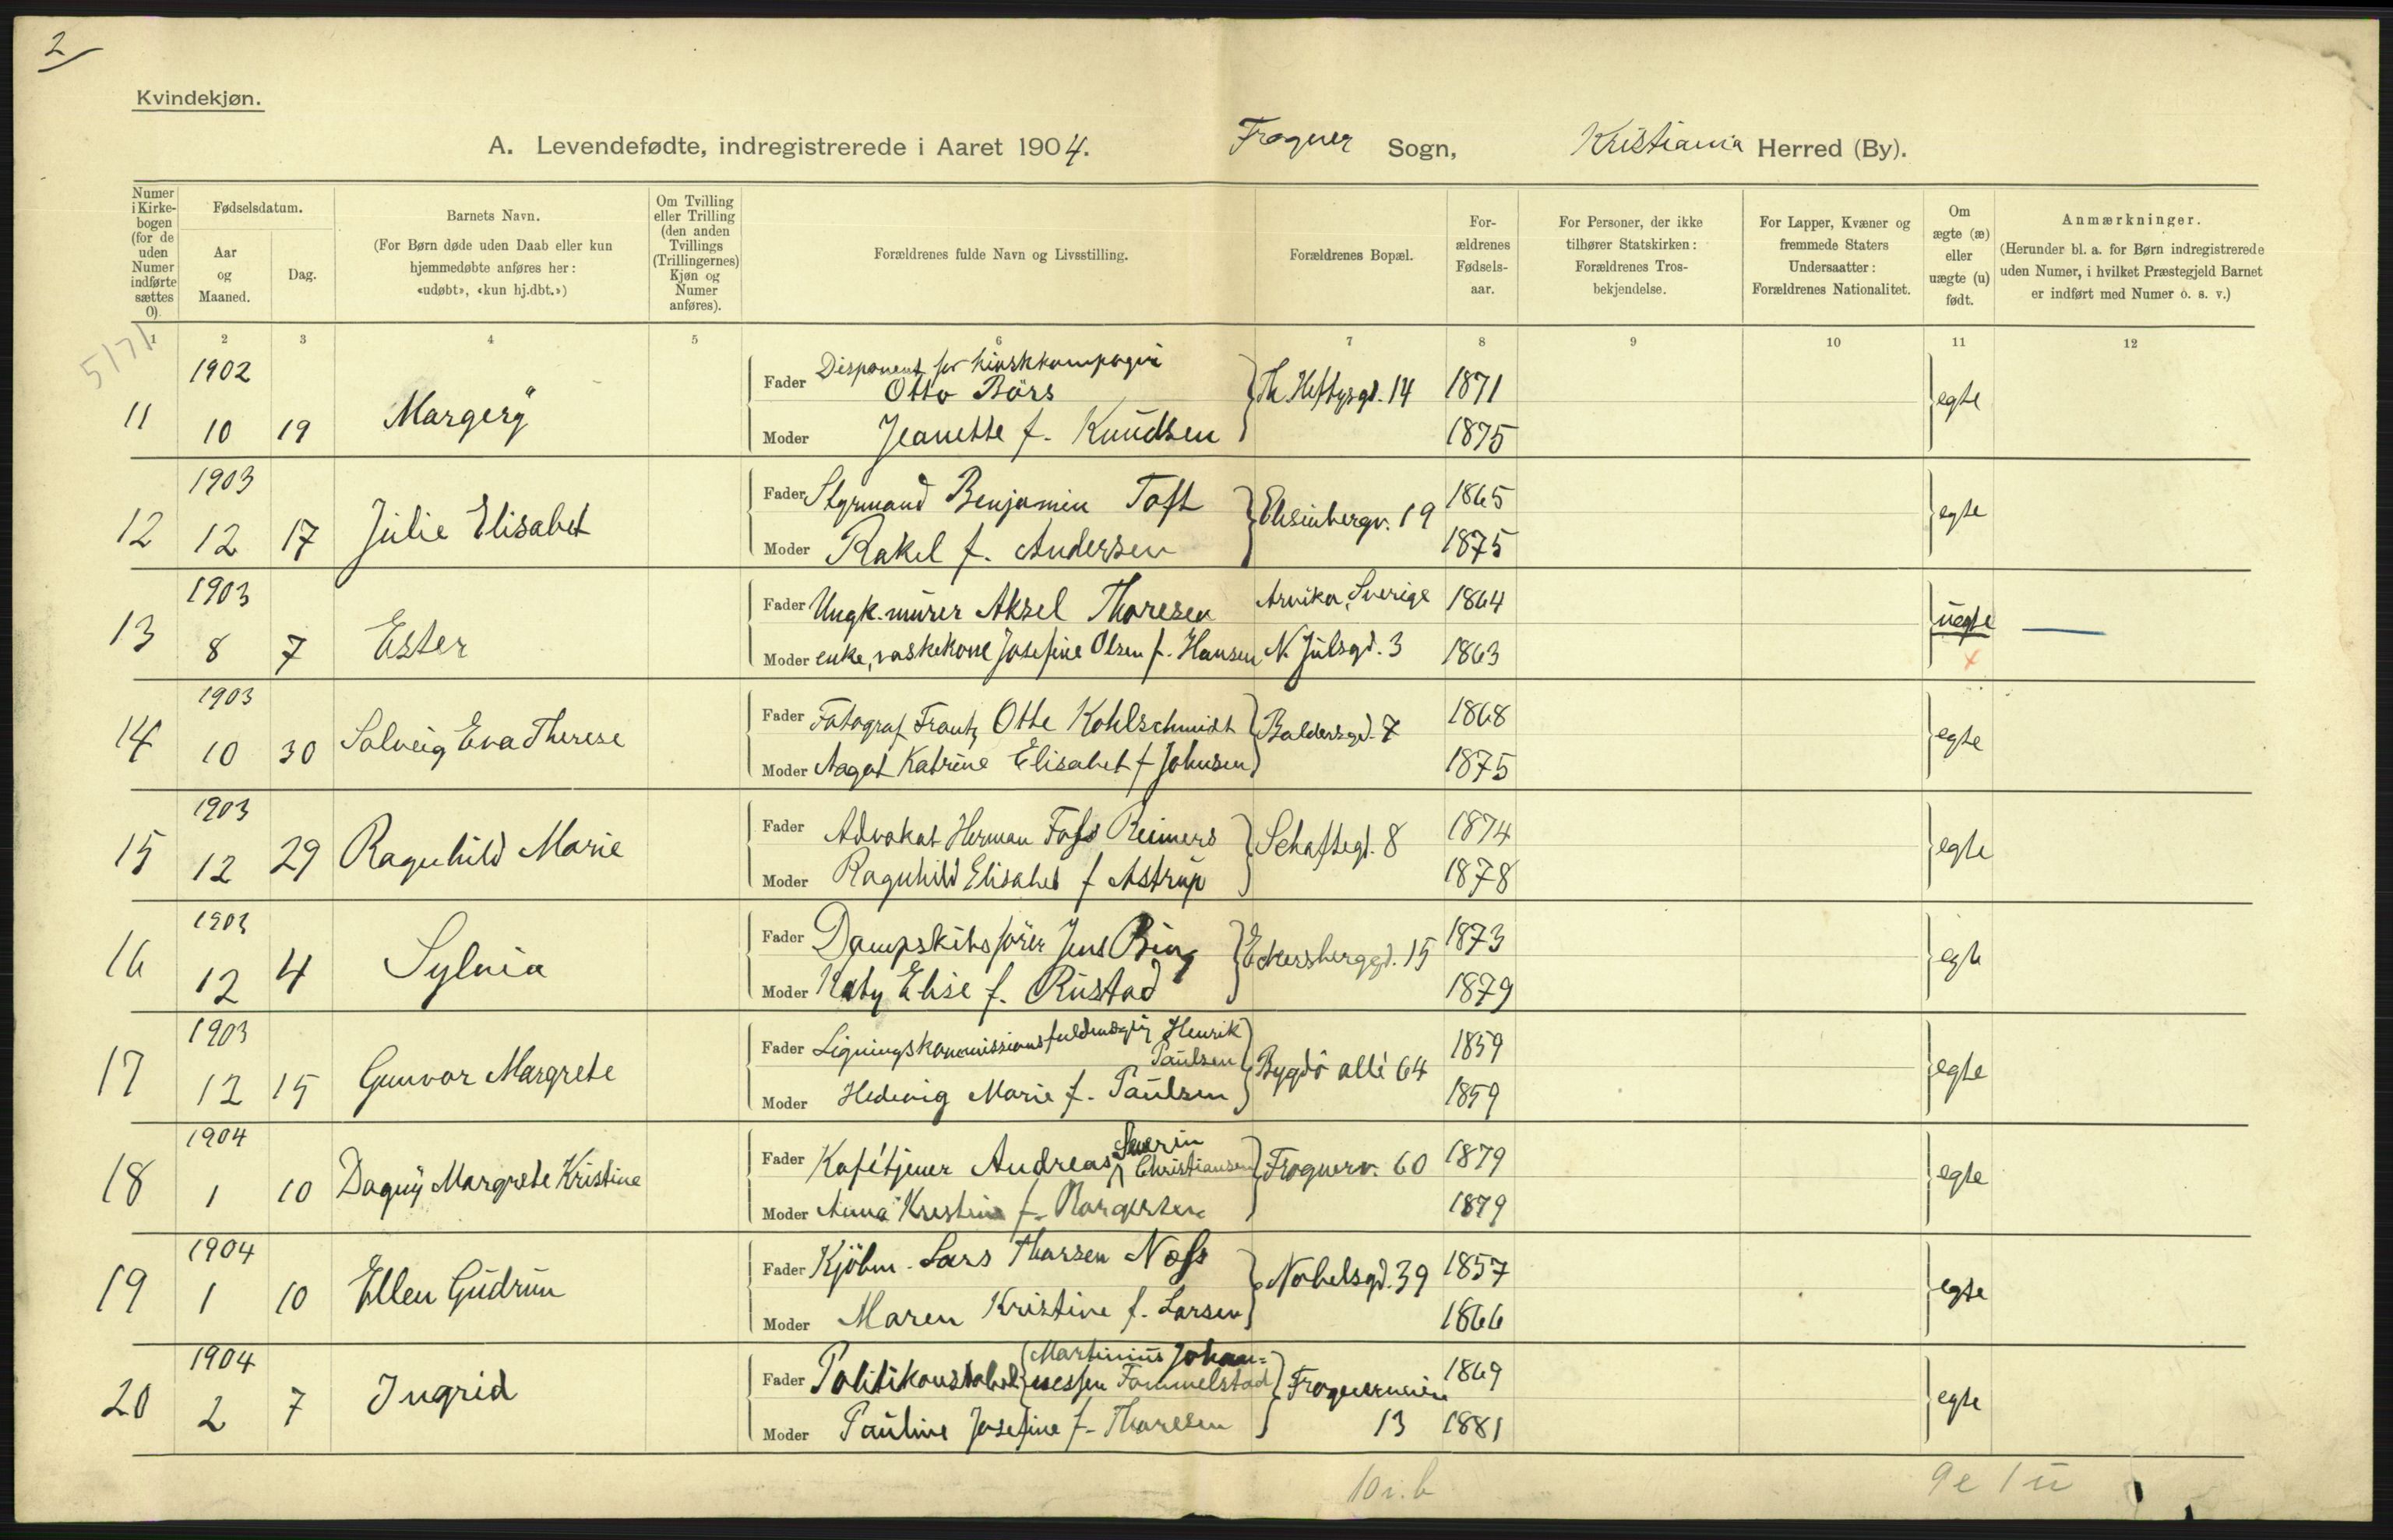 2
Kvindekjøn.
A. Levendefødte, indregistrerede i Aaret 1904. Frogner Sogn, Kristiania Herred (By).
Numer i Kirkebogen (for de uden Numer indførte sættes 0).
Fødselsdatum.
Aar og Maaned.
Dag.
Barnets Navn.
(For Børn døde uden Daab eller kun hjemmedøbte anføres her: «udøbt», «kun hj.dbt.»)
Om Tvilling eller Trilling (den anden Tvillings (Trillingernes) Kjøn og Numer anføres).
Forældrenes fulde Navn og Livsstilling.
Forældrenes Bopæl.
Forældrenes Fødselsaar.
For Personer, der ikke tilhører Statskirken: Forældrenes Trosbekjendelse.
For Lapper, Kvæner og fremmede Staters Undersaatter: Forældrenes Nationalitet.
Om ægte (æ) eller uægte (u) født.
Anmærkninger.
(Herunder bl. a. for Børn indregistrerede uden Numer, i hvilket Præstegjeld Barnet er indført med Numer o. s. v.)
1 2 3 4 5 6 7 8 9 10 11 12
5171
1902
Fader Disponent for kioskkompagni
Otto Börs Th. Heftysgd. 14 1871
11 10 19 Margery egte
Moder Jeanette f. Knudsen 1875
1903
Fader Styrmand Benjamin Toft Elisenbergv. 19 1865
12 12 17 Julie Elisabet egte
Moder Rakel f. Andersen 1875
1903
Fader Ungk. murer Aksel Thoresen Arvika, Sverige 1864
13 8 7 Ester uegte
Moder enke, vaskekone Josefine Olsen f. Hansen N. Julsgd. 3 1863
1903
Fader Fotograf Frantz Otto Kohlschmidt Baldersgd. 7 1868
14 10 30 Solveig Eva Therese egte
Moder Aagot Katrine Elisabet f Johnsen 1875
1903
Fader Advokat Herman Foss Reimers Schaftegd. 8 1874
15 12 29 Ragnhild Marie egte
Moder Ragnhild Elisabet f Astrup 1878
1903
Fader Dampskibsförer Jens Bing Eckersberggd. 15 1873
16 12 4 Sylvia egte
Moder Katy Elise f. Rustad 1879
1903
Fader Ligningskommissionsfuldmægtig Henrik
Paulsen Bygdö allé 64 1859
17 12 15 Gunvor Margrete egte
Moder Hedevig Marie f. Paulsen 1859
1904
Fader Kafétjener Andreas Severin
Christiansen Frognerv. 60 1879
18 1 10 Dagny Margrete Kristine egte
Moder Anna Krestine f. 1879
1904
Fader Kjöbm. Lars Thorsen Næss Nobelsgd. 39 1857
19 1 10 Ellen Gudrun egte
Moder Maren Kristine f. Larsen 1866
1904
Fader Politikonstabel Martinius Johan-
nessen Fommelstad Frognerveien 1869
20 2 7 Ingrid egte
Moder Pauline Josefine f. Thoresen 13 1881
10 i. b 9 e 1 u